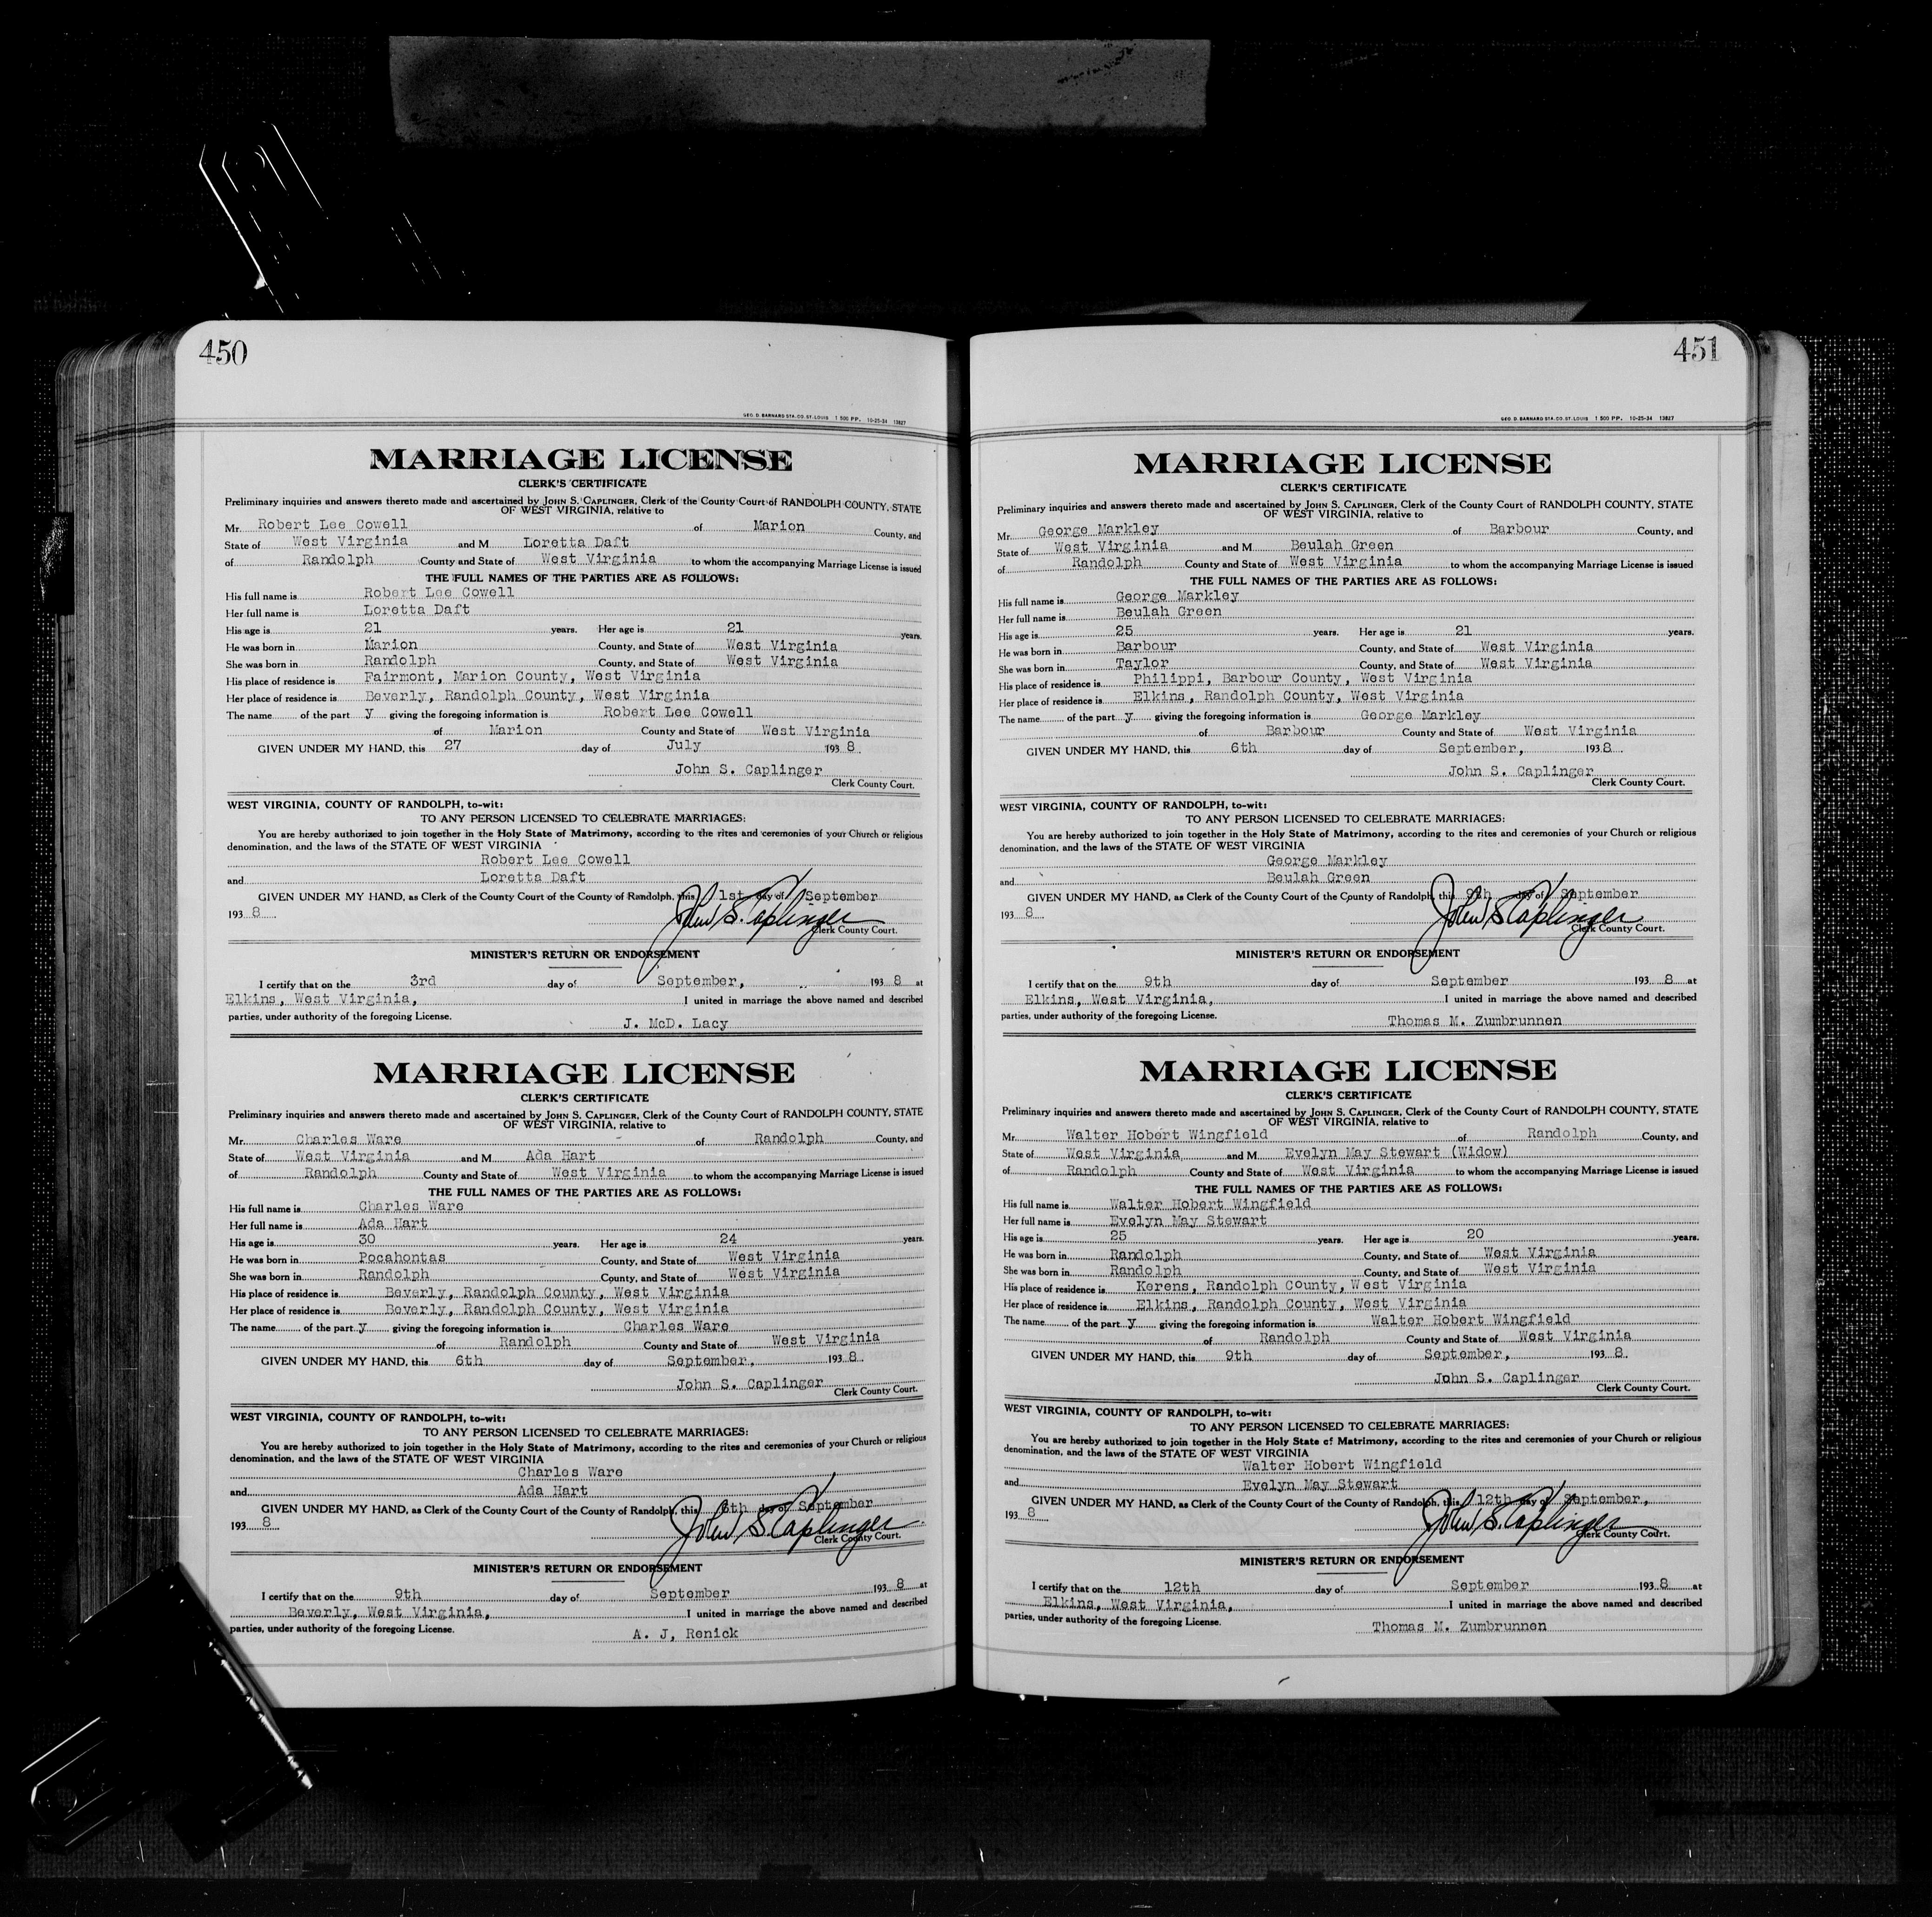 450
GEO. D. BARNARD STA. CO. ST. LOUIS 1 500 PP. 10-25-34 13827
MARRIAGE LICENSE
CLERK'S CERTIFICATE
Preliminary inquiries and answers thereto made and ascertained by JOHN S. CAPLINGER, Clerk of the County Court of RANDOLPH COUNTY, STATE
OF WEST VIRGINIA, relative to
Mr. Robert Lee Cowell of Marion County, and
State of West Virginia and M Loretta Daft
of Randolph County and State of West Virginia to whom the accompanying Marriage License is issued
THE FULL NAMES OF THE PARTIES ARE AS FOLLOWS:
His full name is Robert Lee Cowell
Her full name is Loretta Daft
His age is 21 years. Her age is 21 years.
He was born in Marion County, and State of West Virginia
She was born in Randolph County, and State of West Virginia
His place of residence is Fairmont, Marion County, West Virginia
Her place of residence is Beverly, Randolph County, West Virginia
The name of the part y giving the foregoing information is Robert Lee Cowell
of Marion County and State of West Virginia
GIVEN UNDER MY HAND, this 27 day of July 193 8.
John S. Caplinger
Clerk County Court.
WEST VIRGINIA, COUNTY OF RANDOLPH, to-wit:
TO ANY PERSON LICENSED TO CELEBRATE MARRIAGES:
You are hereby authorized to join together in the Holy State of Matrimony, according to the rites and ceremonies of your Church or religious
denomination, and the laws of the STATE OF WEST VIRGINIA
Robert Lee Cowell
and Loretta Daft
GIVEN UNDER MY HAND, as Clerk of the County Court of the County of Randolph, this 1st day of September
193 8.
John S. Caplinger
Clerk County Court.
MINISTER'S RETURN OR ENDORSEMENT
I certify that on the 3rd day of September, 193 8 at
Elkins, West Virginia, I united in marriage the above named and described
parties, under authority of the foregoing License.
J. McD. Lacy
MARRIAGE LICENSE
CLERK'S CERTIFICATE
Preliminary inquiries and answers thereto made and ascertained by JOHN S. CAPLINGER, Clerk of the County Court of RANDOLPH COUNTY, STATE
OF WEST VIRGINIA, relative to
Mr. Charles Ware of Randolph County, and
State of West Virginia and M Ada Hart
of Randolph County and State of West Virginia to whom the accompanying Marriage License is issued
THE FULL NAMES OF THE PARTIES ARE AS FOLLOWS:
His full name is Charles Ware
Her full name is Ada Hart
His age is 30 years. Her age is 24 years.
He was born in Pocahontas County, and State of West Virginia
She was born in Randolph County, and State of West Virginia
His place of residence is Beverly, Randolph County, West Virginia
Her place of residence is Beverly, Randolph County, West Virginia
The name of the part y giving the foregoing information is Charles Ware
of Randolph County and State of West Virginia
GIVEN UNDER MY HAND, this 6th day of September, 193 8.
John S. Caplinger
Clerk County Court.
WEST VIRGINIA, COUNTY OF RANDOLPH, to-wit:
TO ANY PERSON LICENSED TO CELEBRATE MARRIAGES:
You are hereby authorized to join together in the Holy State of Matrimony, according to the rites and ceremonies of your Church or religious
denomination, and the laws of the STATE OF WEST VIRGINIA
Charles Ware
and Ada Hart
GIVEN UNDER MY HAND, as Clerk of the County Court of the County of Randolph, this 6th day of September
193 8.
John S. Caplinger
Clerk County Court.
MINISTER'S RETURN OR ENDORSEMENT
I certify that on the 9th day of September 193 8 at
Beverly, West Virginia, I united in marriage the above named and described
parties, under authority of the foregoing License.
A. J, Renick
451
GEO. D. BARNARD STA. CO. ST. LOUIS 1 500 PP. 10-25-34 13827
MARRIAGE LICENSE
CLERK'S CERTIFICATE
Preliminary inquiries and answers thereto made and ascertained by JOHN S. CAPLINGER, Clerk of the County Court of RANDOLPH COUNTY, STATE
OF WEST VIRGINIA, relative to
Mr. George Markley of Barbour County, and
State of West Virginia and M Beulah Green
of Randolph County and State of West Virginia to whom the accompanying Marriage License is issued
THE FULL NAMES OF THE PARTIES ARE AS FOLLOWS:
His full name is George Markley
Her full name is Beulah Green
His age is 25 years. Her age is 21 years.
He was born in Barbour County, and State of West Virginia
She was born in Taylor County, and State of West Virginia
His place of residence is Philippi, Barbour County, West Virginia
Her place of residence is Elkins, Randolph County, West Virginia
The name of the part y giving the foregoing information is George Markley
of Barbour County and State of West Virginia
GIVEN UNDER MY HAND, this 6th day of September, 193 8.
John S. Caplinger
Clerk County Court.
WEST VIRGINIA, COUNTY OF RANDOLPH, to-wit:
TO ANY PERSON LICENSED TO CELEBRATE MARRIAGES:
You are hereby authorized to join together in the Holy State of Matrimony, according to the rites and ceremonies of your Church or religious
denomination, and the laws of the STATE OF WEST VIRGINIA
George Markley
and Beulah Green
GIVEN UNDER MY HAND, as Clerk of the County Court of the County of Randolph, this 9th day of September
193 8.
John S Caplinger
Clerk County Court.
MINISTER'S RETURN OR ENDORSEMENT
I certify that on the 9th day of September 193 8 at
Elkins, West Virginia, I united in marriage the above named and described
parties, under authority of the foregoing License.
Thomas M. Zumbrunnen
MARRIAGE LICENSE
CLERK'S CERTIFICATE
Preliminary inquiries and answers thereto made and ascertained by JOHN S. CAPLINGER, Clerk of the County Court of RANDOLPH COUNTY, STATE
OF WEST VIRGINIA, relative to
Mr. Walter Hobert Wingfield of Randolph County, and
State of West Virginia and M Evelyn May Stewart (Widow)
of Randolph County and State of West Virginia to whom the accompanying Marriage License is issued
THE FULL NAMES OF THE PARTIES ARE AS FOLLOWS:
His full name is Walter Hobert Wingfield
Her full name is Evelyn May Stewart
His age is 25 years. Her age is 20 years.
He was born in Randolph County, and State of West Virginia
She was born in Randolph County, and State of West Virginia
His place of residence is Kerens, Randolph County, West Virginia
Her place of residence is Elkins, Randolph County, West Virginia
The name of the part y giving the foregoing information is Walter Hobert Wingfield
of Randolph County and State of West Virginia
GIVEN UNDER MY HAND, this 9th day of September, 193 8.
John S. Caplinger
Clerk County Court.
WEST VIRGINIA, COUNTY OF RANDOLPH, to-wit:
TO ANY PERSON LICENSED TO CELEBRATE MARRIAGES:
You are hereby authorized to join together in the Holy State of Matrimony, according to the rites and ceremonies of your Church or religious
denomination, and the laws of the STATE OF WEST VIRGINIA
Walter Hobert Wingfield
and Evelyn May Stewart
GIVEN UNDER MY HAND, as Clerk of the County Court of the County of Randolph, this 12th day of September,
193 8
John S. Caplinger
Clerk County Court.
MINISTER'S RETURN OR ENDORSEMENT
I certify that on the 12th day of September 193 8 at
Elkins, West Virginia, I united in marriage the above named and described
parties, under authority of the foregoing License.
Thomas M. Zumbrunnen